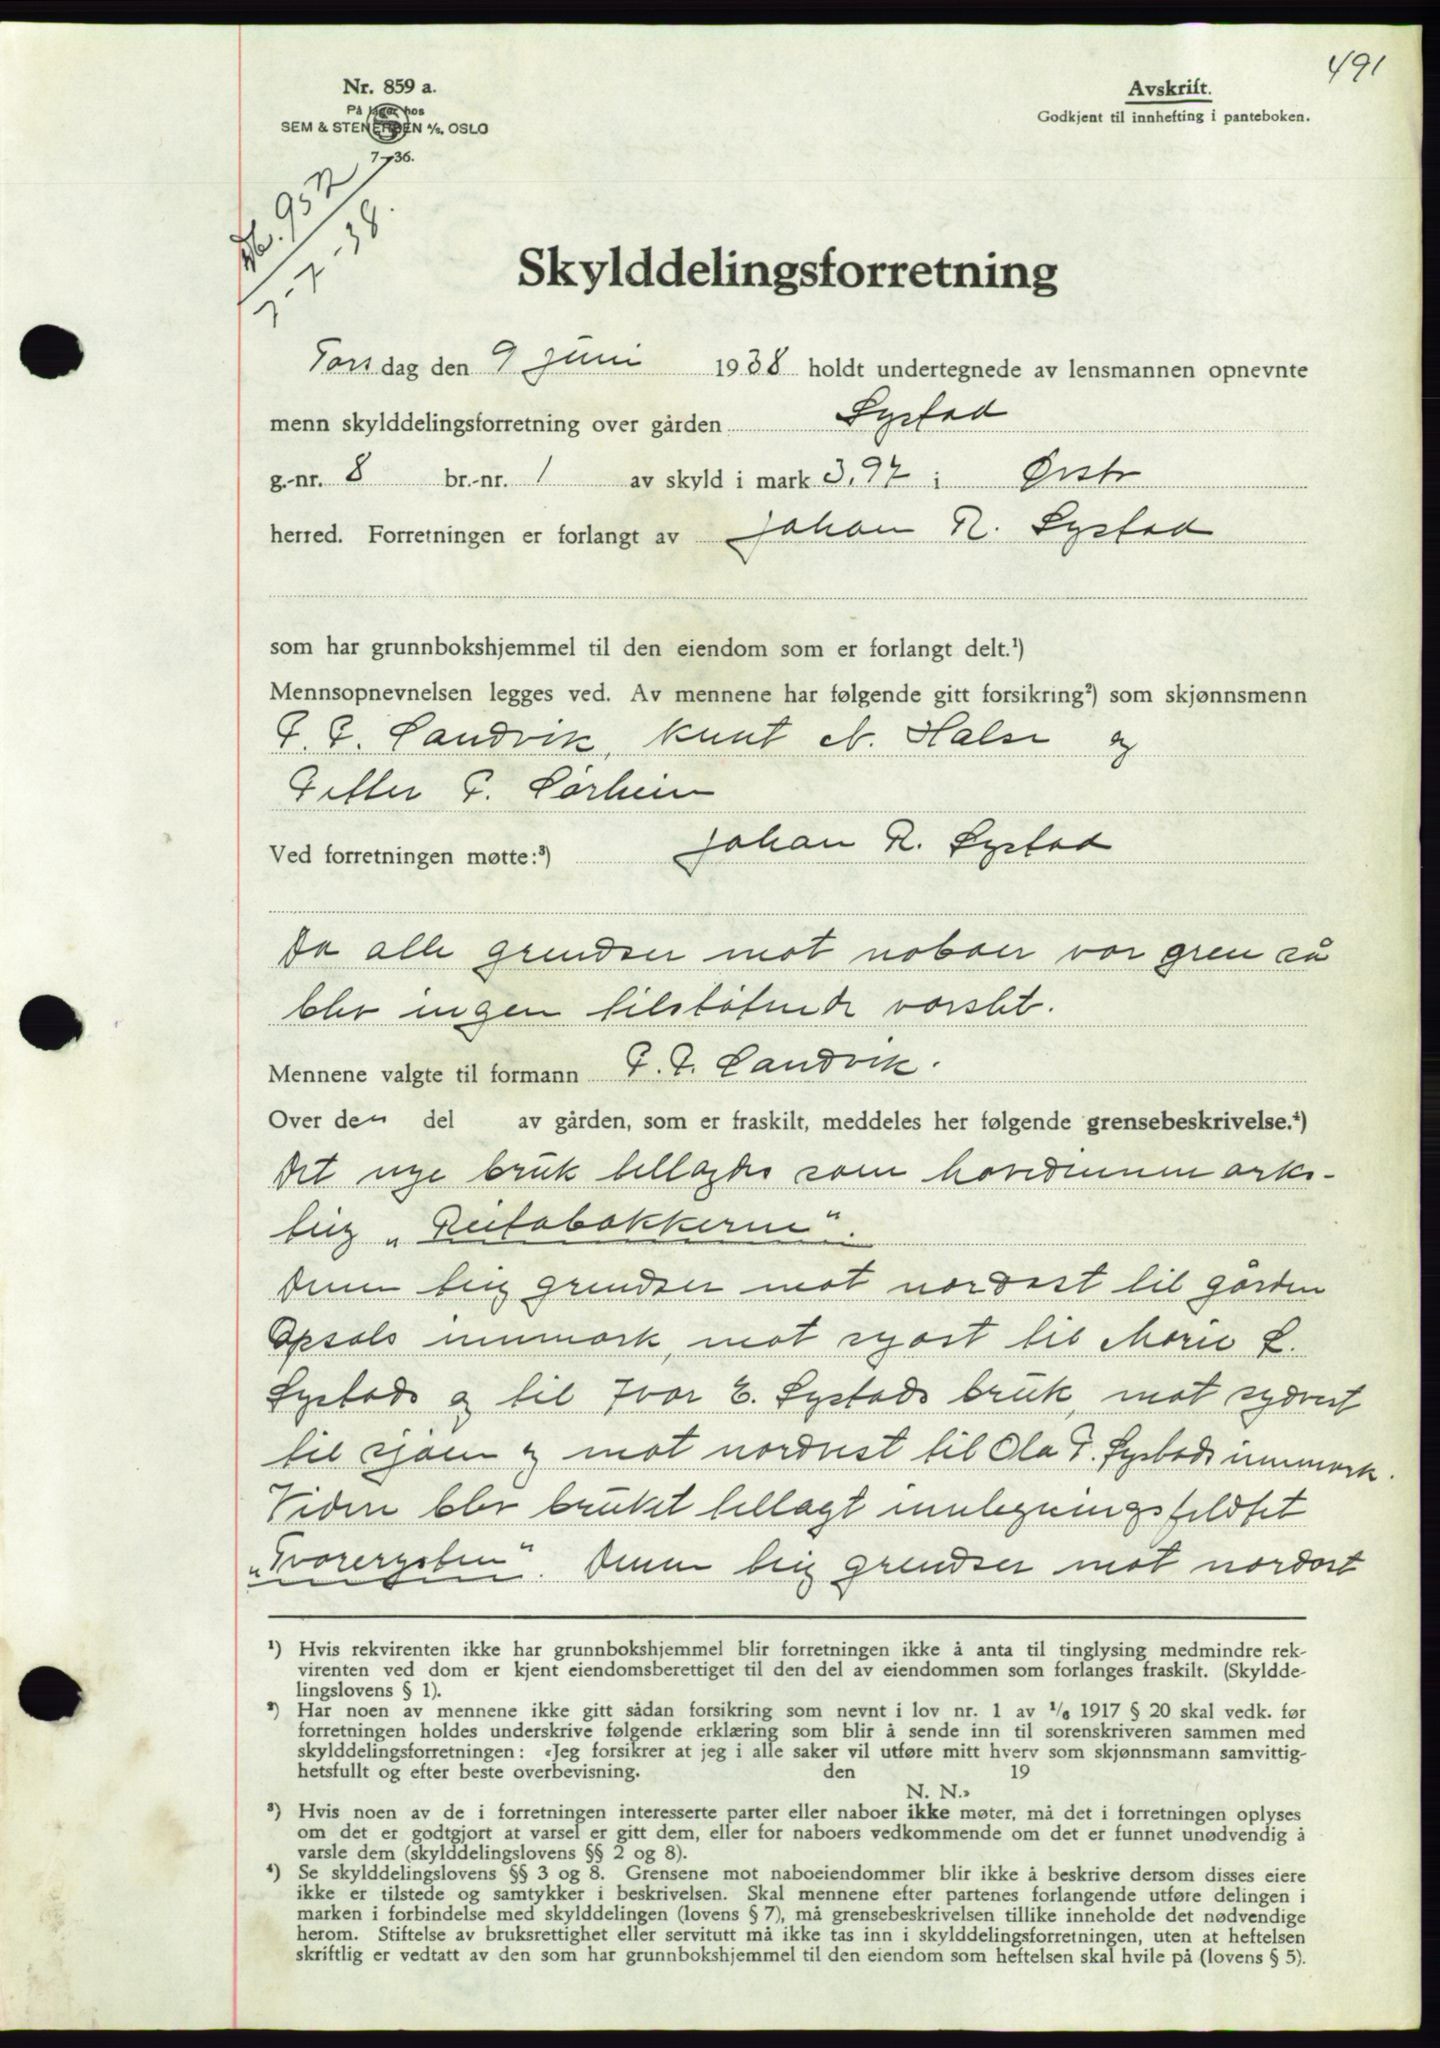 491
Nr. 859 a.
På lager hos
SEM & STENERSEN A/S, OSLO
7—36.
Avskrift.
Godkjent til innhefting i panteboken.
Db. 952
7-7-38.
Skylddelingsforretning
Torsdag den 9 juni 1938 holdt undertegnede av lensmannen opnevnte
menn skylddelingsforretning over gården Systad
g.-nr. 8 br.-nr. 1 av skyld i mark 3,97 i Ørsta
herred. Forretningen er forlangt av Johan R. Systad
som har grunnbokshjemmel til den eiendom som er forlangt delt.¹)
Mennsopnevnelsen legges ved. Av mennene har følgende gitt forsikring²) som skjønnsmenn
P. P. Sandvik, Knut N. Halse og
Petter P. Sørheim
Ved forretningen møtte:³) Johan R. Systad
Da alle grendser mot naboer var grei så
blev ingen tilstøtende varslet.
Mennene valgte til formann P. P. Sandvik.
Over den del av gården, som er fraskilt, meddeles her følgende grensebeskrivelse.⁴)
Det nye bruk tillagdes som hovedinnmarks-
teig „Reitabakkerne".
Denne teig grendser mot nordost til gården
Opsals innmark, mot syost til Marie S.
Systads og til Ivar E. Systads bruk, mot sydvest
til sjøen og mot nordvest til Ola P. Systads innmark.
Videre blev bruket tillagt innlegningsfeldtet
„Tvorerysten". Denne teig grendser mot nordost
¹) Hvis rekvirenten ikke har grunnbokshjemmel blir forretningen ikke å anta til tinglysing medmindre rek-
virenten ved dom er kjent eiendomsberettiget til den del av eiendommen som forlanges fraskilt. (Skyldde-
lingslovens § 1).
²) Har noen av mennene ikke gitt sådan forsikring som nevnt i lov nr. 1 av ¹/₆ 1917 § 20 skal vedk. før
forretningen holdes underskrive følgende erklæring som blir å sende inn til sorenskriveren sammen med
skylddelingsforretningen: «Jeg forsikrer at jeg i alle saker vil utføre mitt hverv som skjønnsmann samvittig-
hetsfullt og efter beste overbevisning. den 19
N. N.»
³) Hvis noen av de i forretningen interesserte parter eller naboer ikke møter, må det i forretningen oplyses
om det er godtgjort at varsel er gitt dem, eller for naboers vedkommende om det er funnet unødvendig å
varsle dem (skylddelingslovens §§ 2 og 8).
⁴) Se skylddelingslovens §§ 3 og 8. Grensene mot naboeiendommer blir ikke å beskrive dersom disses eiere
ikke er tilstede og samtykker i beskrivelsen. Skal mennene efter partenes forlangende utføre delingen i
marken i forbindelse med skylddelingen (lovens § 7), må grensebeskrivelsen tillike inneholde det nødvendige
herom. Stiftelse av bruksrettighet eller servitutt må ikke tas inn i skylddelingsforretningen, uten at heftelsen
skriftlig er vedtatt av den som har grunnbokshjemmel til den eiendom som heftelsen skal hvile på (lovens § 5).